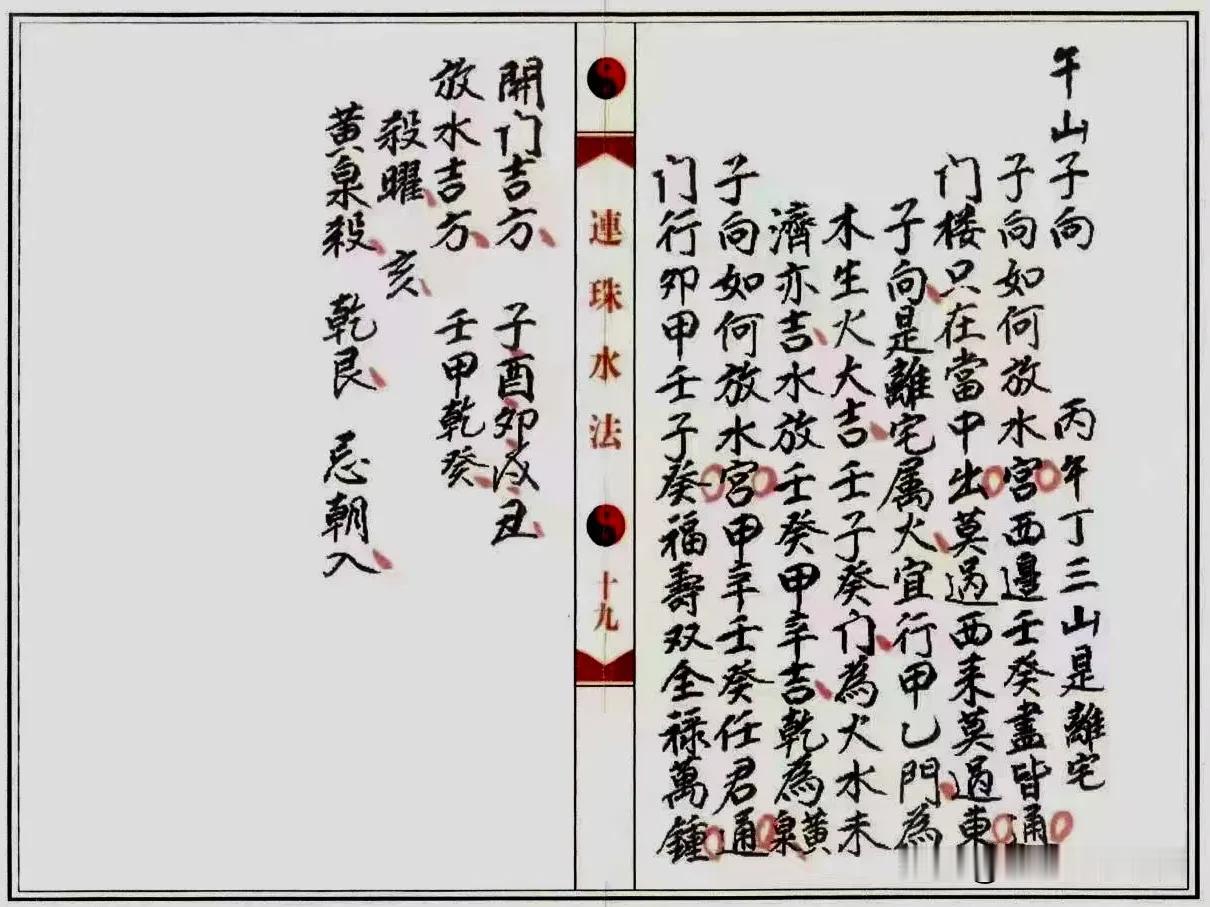 午山子向 丙午丁三山是離宅
子向如何放水宫西邊壬癸盡皆通
门楼只在當中出莫過西来莫過東
子向是離宅属火宜行甲乙門為
木生火大吉壬子癸门為火水未
濟亦吉水放壬癸甲辛吉乾為黄泉
子向如何放水宫甲辛壬癸任君通
门行卯甲壬子癸福壽双全禄萬鍾
連珠水法 十九
開门吉方 子酉卯戌丑
放水吉方 壬甲乾癸
殺曜 亥
黄泉殺 乾艮 忌朝入